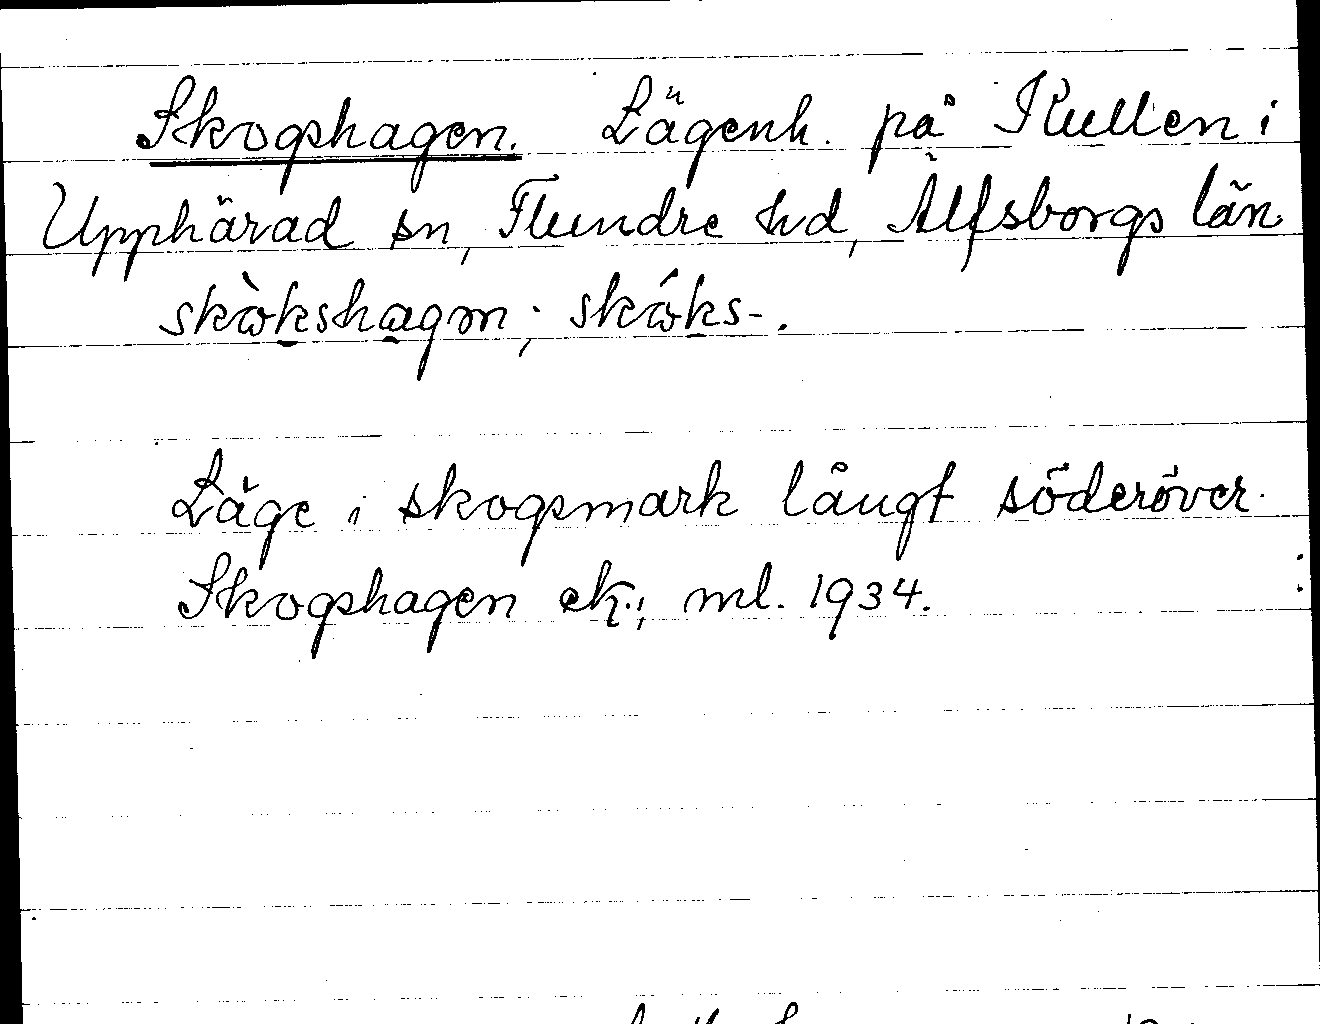 Skogshagen. Lägenh. på Kullen i
Upphärad sn, Flundre hd, Älfsborgs län
skòkshagɷn; skóks-.
Läge i skogsmark långt söderöver.
Skogshagen ek., ml. 1934.